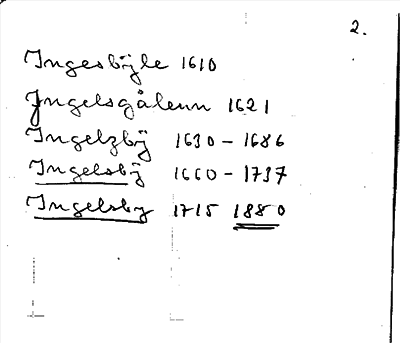 2.
Ingesbÿle 1610
Ingelsgålenn 1621
Ingelzbÿ 1630 - 1686
Ingelsbÿ 1660 - 1737
Ingelsby 1715 1880